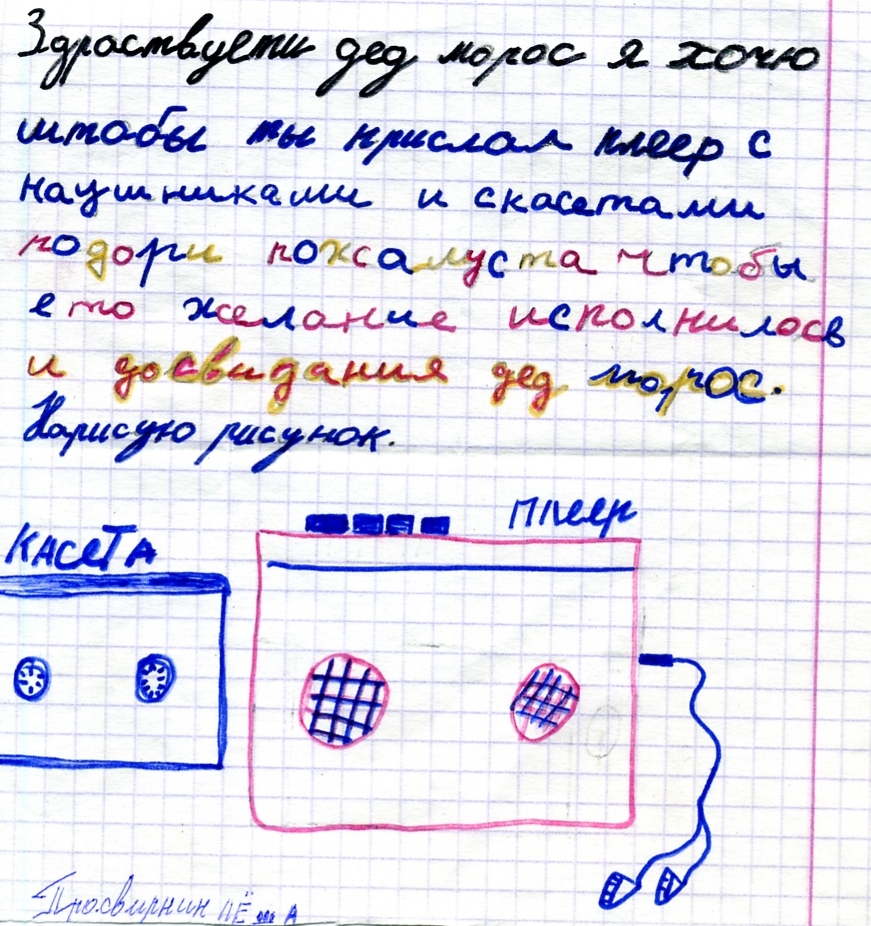 Здраствуети дед морос я хочю
штобы ты прислал плеер с
наушниками и скасетами
подори похсалуста чтобы
ето желание исполнилосв
и досвидания дед морос.
Нарисую рисунок.
плеер
КАСеТА
Просвирнин ПЁтА